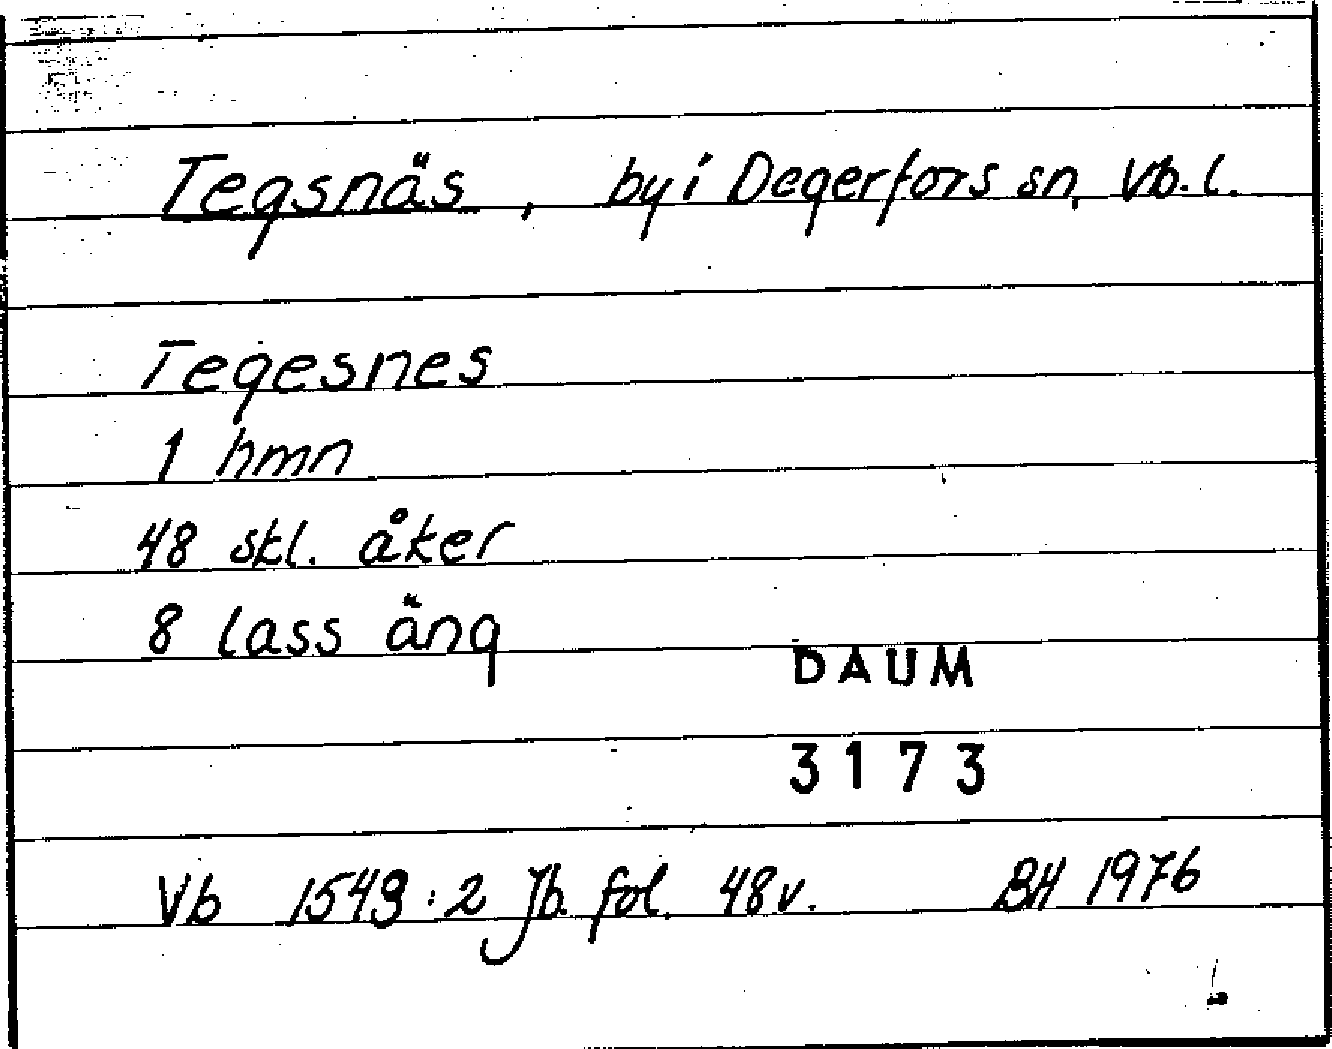 Tegsnäs, by i Degerfors sn, Vb. l.
Tegesnes
1 hmn
48 skl. åker
8 lass äng
DAUM
3173
Vb 1543:2 Jb. fol. 48v. BH 1976